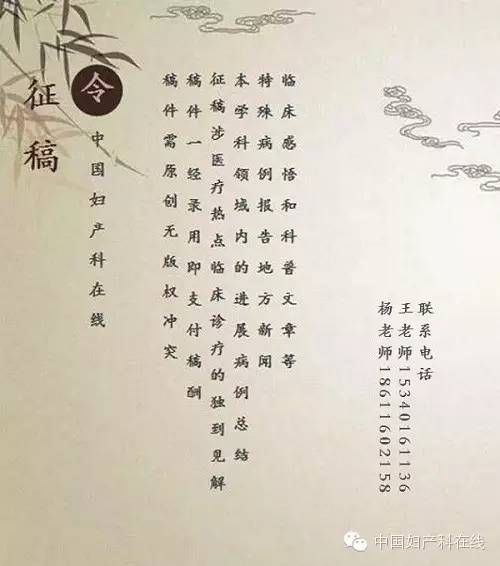 征稿令
中国妇产科在线
稿件需原创无版权冲突
稿件一经录用即支付稿酬
征稿涉医疗热点临床诊疗的独到见解
本学科领域内的进展病例总结
特殊病例报告地方新闻
临床感悟和科普文章等
联系电话
王老师15340161136
杨老师18611602158
中国妇产科在线